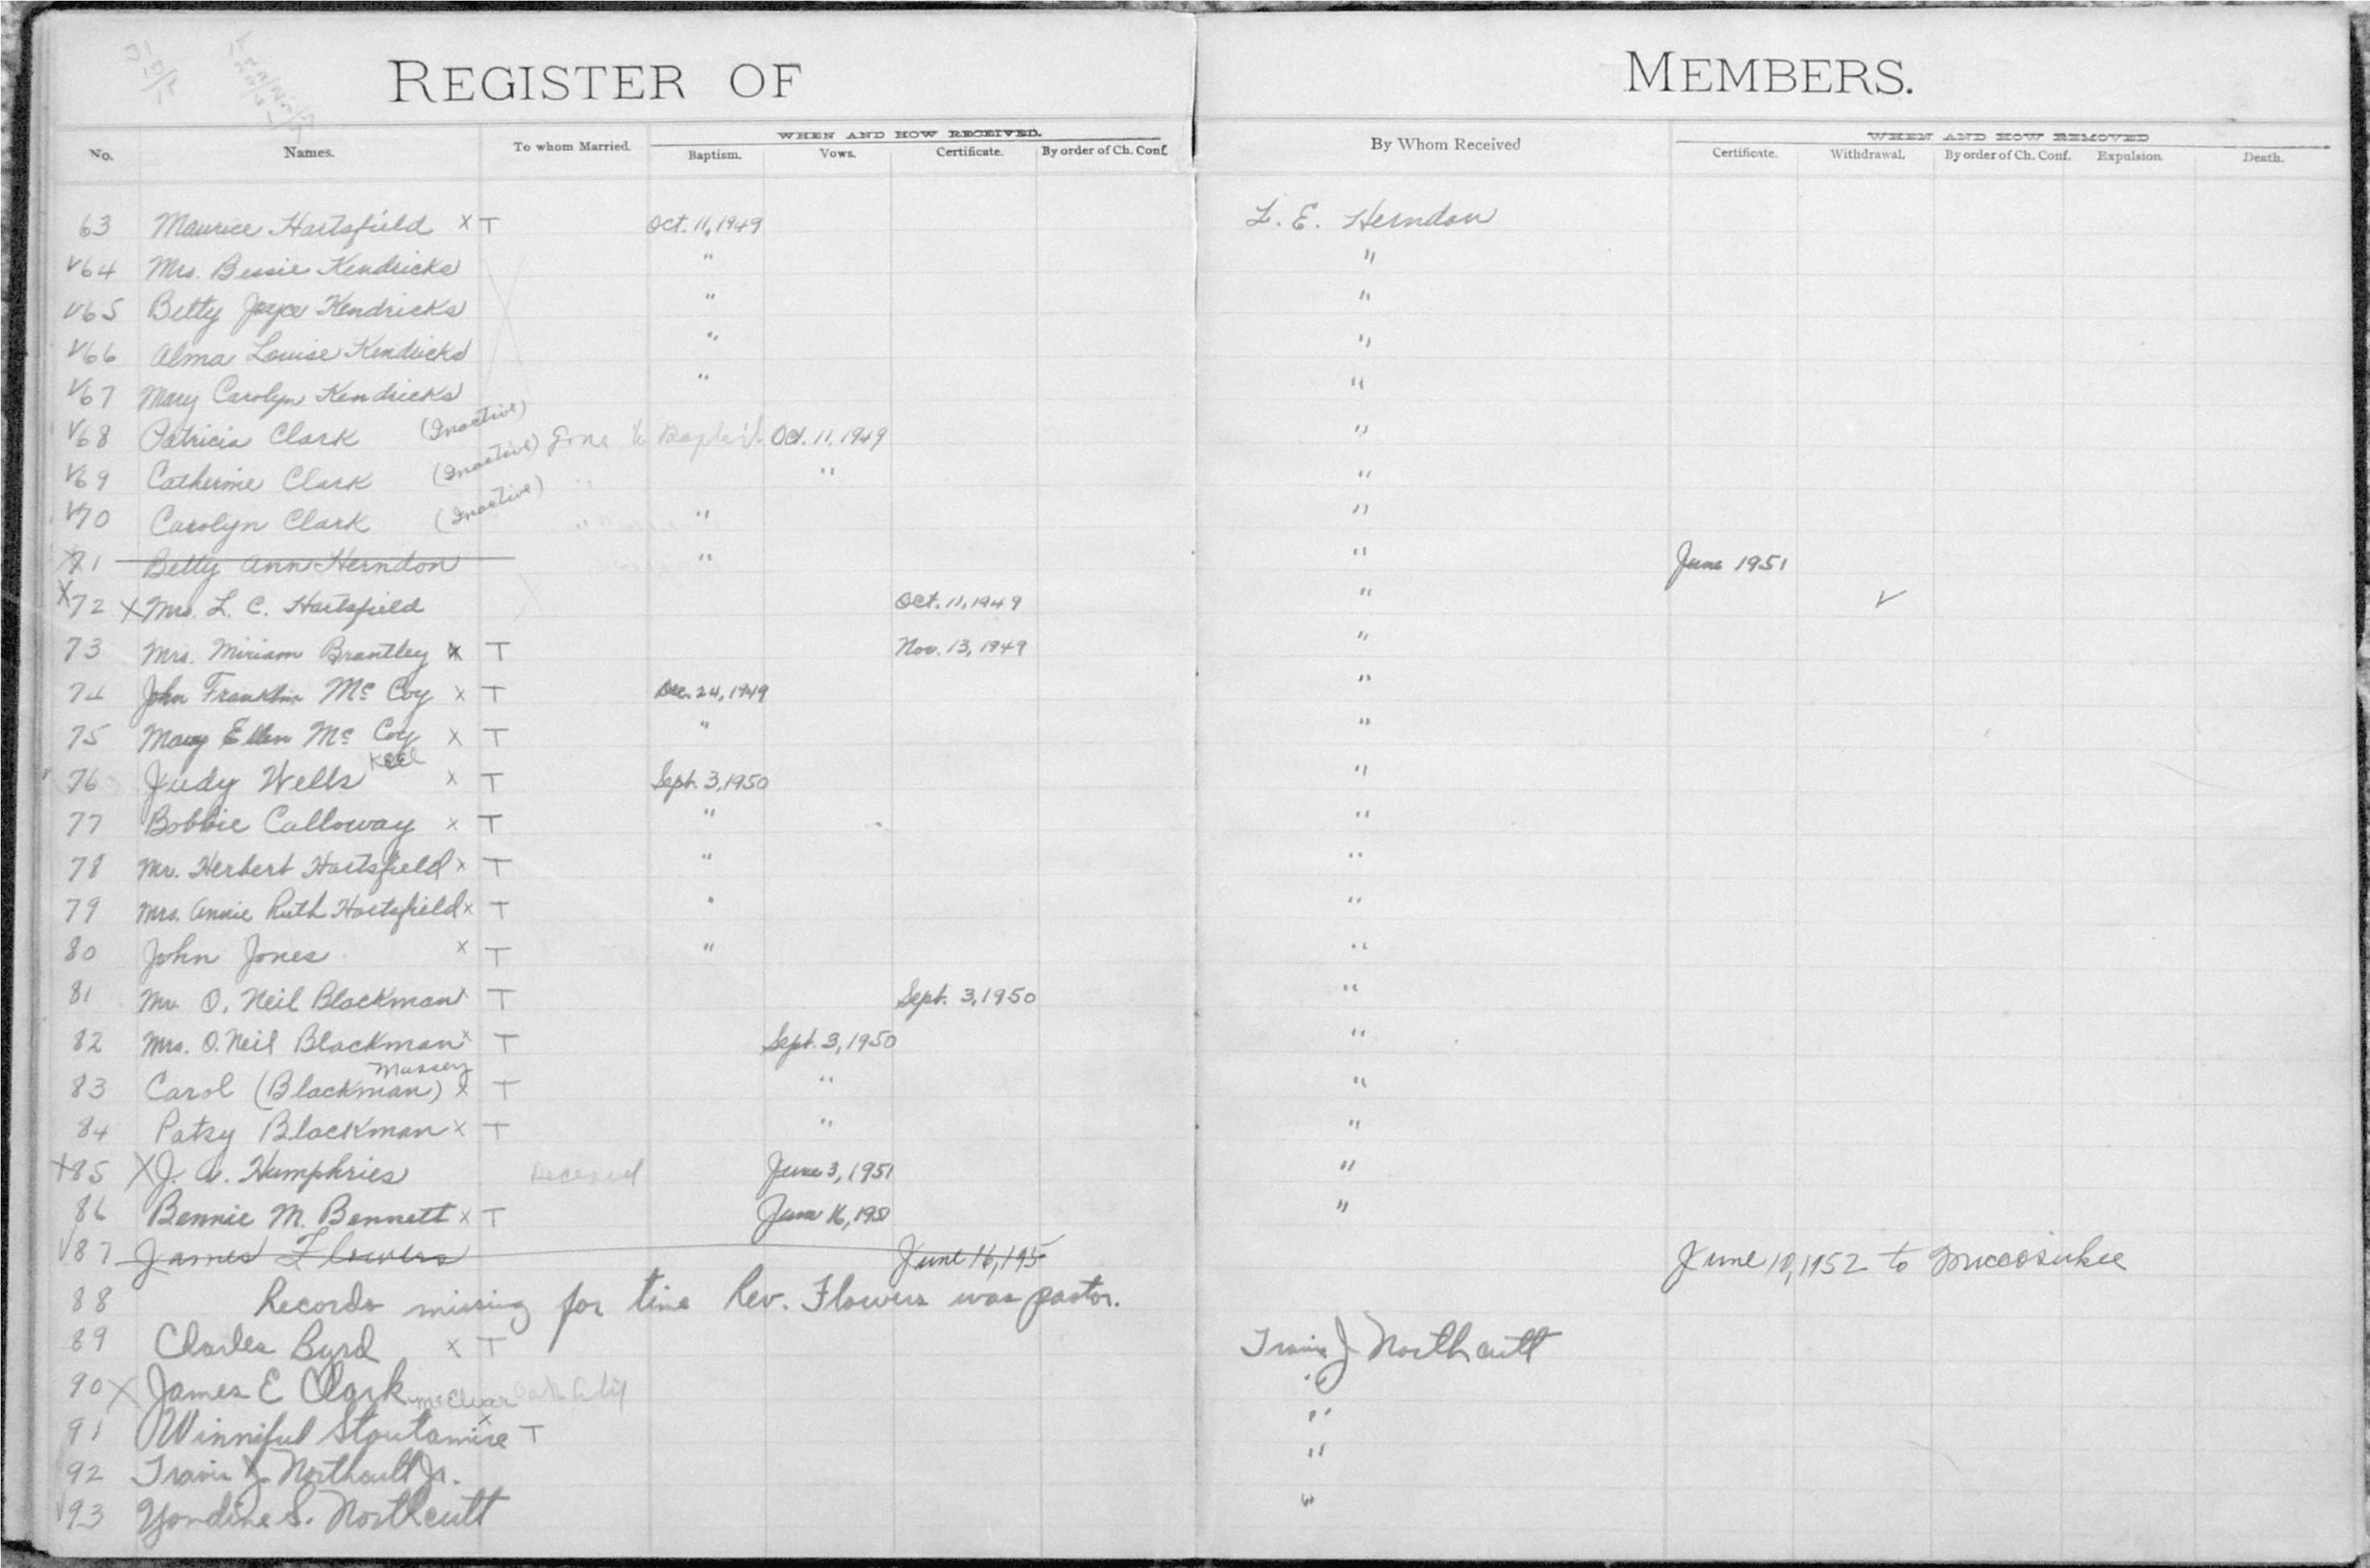 REGISTER OF MEMBERS.
WHEN AND HOW RECEIVED. WHEN AND HOW REMOVED
No. Names. To whom Married. Baptism. Vows. Certificate. By order of Ch. Conf. By Whom Received Certificate. Withdrawal. By order of Ch. Conf. Expulsion. Death.
63 Maurice Hartsfield X T Oct. 11, 1949 L. E. Herndon
√64 Mrs. Bessie Kendricks " "
√65 Betty Joyce Kendricks " "
√66 Alma Louise Kendricks " "
√67 Mary Carolyn Kendricks " "
√68 Patricia Clark (Inactive) Gone to Baptist Oct. 11, 1949 "
√69 Catherine Clark (Inactive) " " "
√70 Carolyn Clark (Inactive) " " "
X71 Betty Ann Herndon " " June 1951
X72 X Mrs. L. C. Hartsfield Oct. 11, 1949 " √
73 Mrs. Miriam Brantley X T Nov. 13, 1949 "
74 John Franklin McCoy X T Dec. 24, 1949 "
75 Mary Ellen McCoy X T " "
Keel
76 Judy Wells X T Sept. 3, 1950 "
77 Bobbie Calloway X T " "
78 Mr. Herbert Hartsfield X T " "
79 Mrs. Annie Ruth Hartsfield X T " "
80 John Jones X T " "
81 Mr. O. Neil Blackman X T Sept. 3, 1950 "
82 Mrs. O. Neil Blackman X T Sept. 3, 1950 "
Massey
83 Carol (Blackman) X T " "
84 Patsy Blackman X T " "
X85 X J. A. Humphries Decesed June 3, 1951 "
86 Bennie M. Bennett X T June 16, 1951 "
√87 James Flowers June 16, 195 June 19, 1952 to Miccosukee
88 Records missing for time Rev. Flowers was pastor.
89 Charles Byrd X T Travis J Northcutt
90 X James E Clark "
91 Winniful Stoutamire X T "
92 Travis J. Northcutt Jr. "
√93 Yondine S. Northcutt "